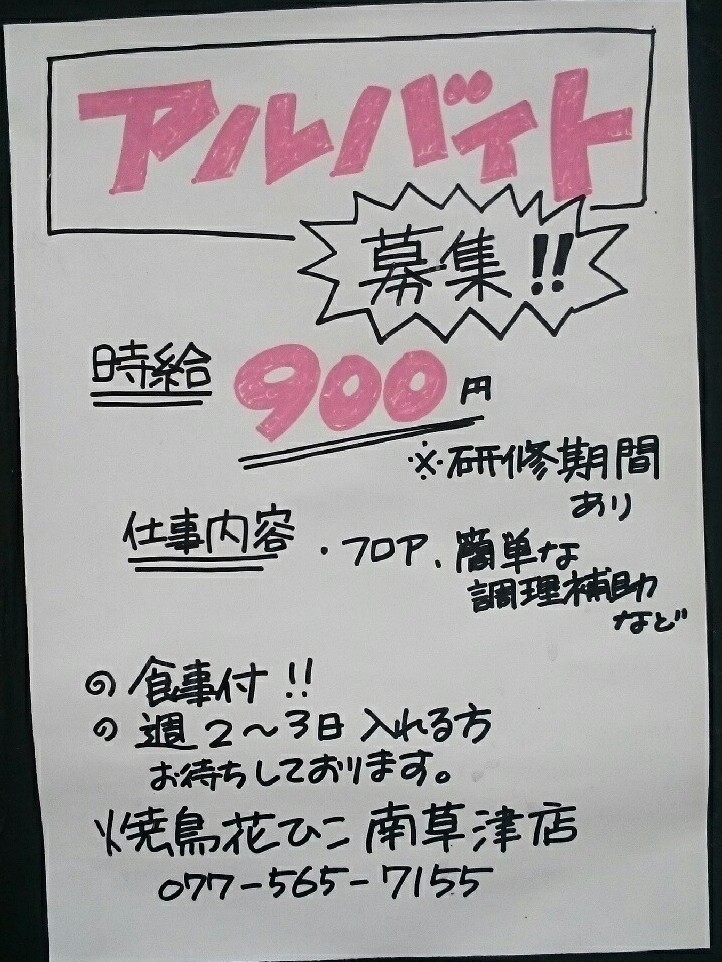 アルバイト
募集!!
時給 900円
※研修期間
あり
仕事内容 ・フロア、簡単な
調理補助
など
の 食事付!!
の 週2〜3日入れる方
お待ちしております。
焼鳥花ひこ 南草津店
077-565-7155